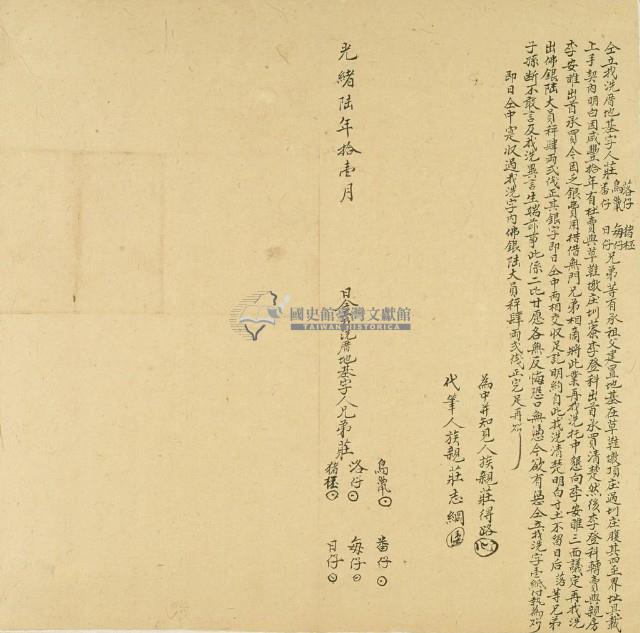 仝立找洗厝地基字人莊 落仔 猪極 烏鶖 每仔 番仔 日仔 兄弟等有承祖父建置地基在草鞋墩頂庄過圳庄腹其四至界址具載
上手契內明白因咸豐拾年有杜賣與草鞋墩庄圳藔李登科出首承買清楚然後李登科轉賣與親房
李安睢出首承買今因乏銀費用措借無門兄弟相商將此業再找洗托中懇向李安睢三面議定再找洗
出佛銀陸大員秤肆両弍戔正其銀字即日仝中両相交收足訖明約自此找洗清楚明白寸土不留日后落等兄弟
子孫斷不敢言及找洗異言生端滋事此係二比甘愿各無反悔恐口無憑今欲有憑仝立找洗字壹紙付執為炤
即日仝中寔收過找洗字內佛銀陸大員秤肆両弍戔正完足再炤
為中并知見人族親莊得路
代筆人族親莊志綱
日仝立找洗厝地基字人兄弟莊
烏鶖 番仔
落仔 每仔
猪極 日仔
光緒陸年拾壹月
國史館臺灣文獻館
TAIWAN HISTORICA